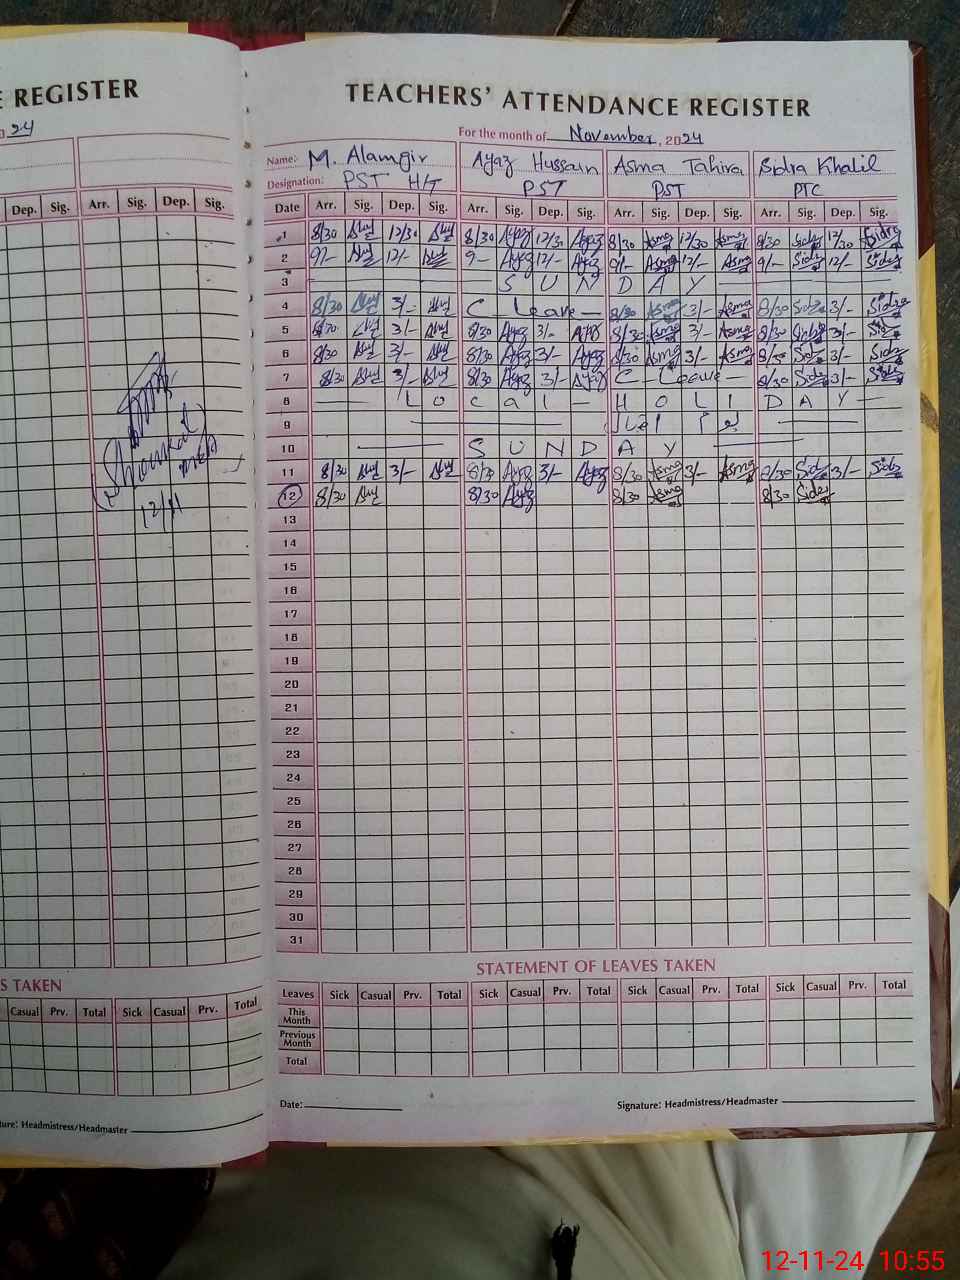 E REGISTER
24
Dep. Sig. Arr. Sig. Dep. Sig.
12/11
S TAKEN
Casual Prv. Total Sick Casual Prv. Total
ture: Headmistress/Headmaster
TEACHERS' ATTENDANCE REGISTER
For the month of November, 2024
Name: M. Alamgir Ayaz Hussain Asma Tahira Sidra Khalil
Designation: PST H/T PST PST PTC
Date Arr. Sig. Dep. Sig. Arr. Sig. Dep. Sig. Arr. Sig. Dep. Sig. Arr. Sig. Dep. Sig.
1 8/30 12/30 8/30 Ayaz 12/30 Ayaz 8/30 Asma 12/30 Asma 8/30 Sidra 12/30 Sidra
2 9/- 12/- 9- Ayaz 12/- Ayaz 9/- Asma 12/- Asma 9/- Sidra 12/- Sidra
3 SUNDAY
4 8/30 3/- C Leave 8/30 Asma 3/- Asma 8/30 Sidra 3/- Sidra
5 8/30 3/- 8/30 Ayaz 3/- Ayaz 8/30 Asma 3/- Asma 8/30 Sidra 3/-
6 8/30 3/- 8/30 Ayaz 3/- Ayaz 8/30 Asma 3/- Asma 8/30 3/- Sidra
7 8/30 3/- 8/30 Ayaz 3/- Ayaz C Leave 8/30 Sidra 3/- Sidra
8 Local HOLIDAY
9 یوم اقبال
10 SUNDAY
11 8/30 3/- 8/30 Ayaz 3/- Ayaz 8/30 Asma 3/- Asma 8/30 Sidra 3/- Sidra
12 8/30 8/30 Ayaz 8/30 Asma 8/30 Sidra
13
14
15
16
17
18
19
20
21
22
23
24
25
26
27
28
29
30
31
STATEMENT OF LEAVES TAKEN
Leaves Sick Casual Prv. Total Sick Casual Prv. Total Sick Casual Prv. Total Sick Casual Prv. Total
This Month
Previous Month
Total
Date: Signature: Headmistress/Headmaster
12-11-24 10:55